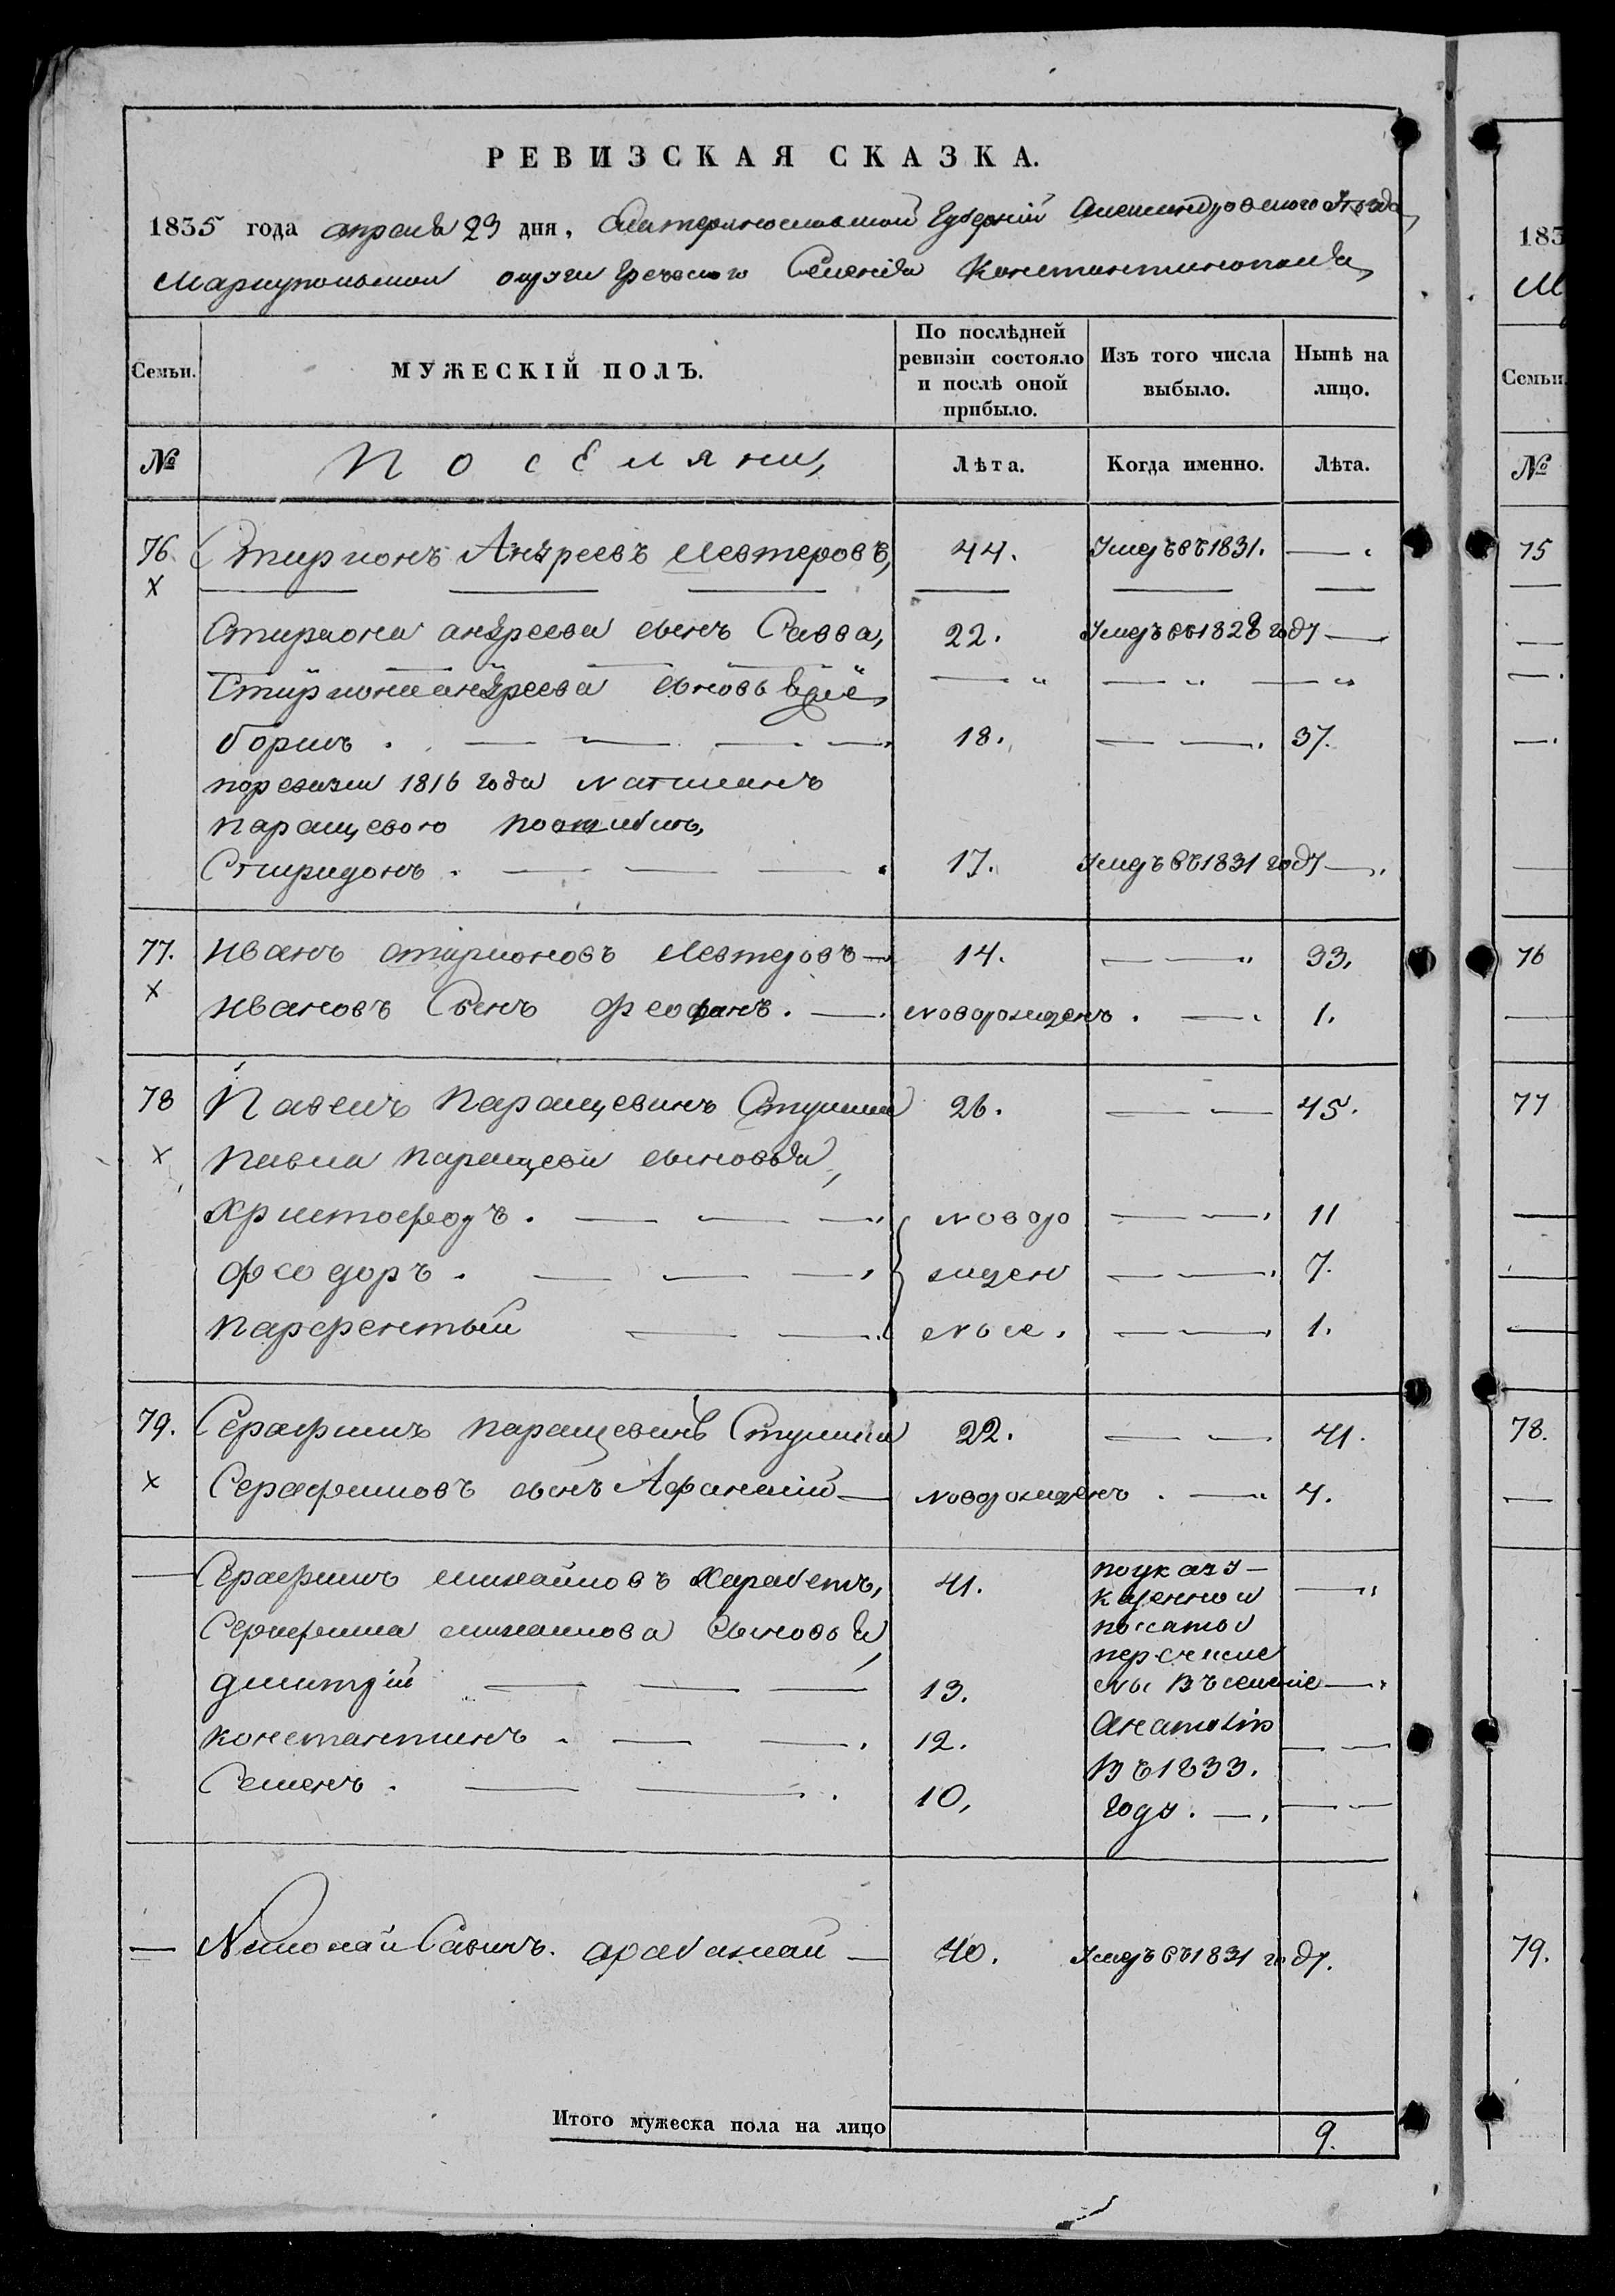 РЕВИЗСКАЯ СКАЗКА.
1835 года апреля 29 дня, Екатеринославской Губерніи Александровского Уезда,
Мариупольской округи Греческого Селенія Константинополя,
Семьи. МУЖЕСКІЙ ПОЛЪ. По послѣдней ревизіи состояло и послѣ оной прибыло. Изъ того числа выбыло. Нынѣ на лицо.
№ Поселяни, Лѣта. Когда именно. Лѣта.
76. Стирионъ Андреевъ Левтеровъ, 44. Умеръ въ 1831. — .
X — — — — — —
Стириона андреева сынъ Савва, 22. Умеръ въ 1828 году —
Стириона андреева сыновья — " — " — "
борисъ . — — — — 18. — — . 37.
поревизии 1816 года
Паращевою
Спиридонъ . — — — . 17. Умеръ въ 1831 году — .
77. Иванъ стирионовъ Левтеровъ — 14. — — " 33.
X Ивановъ Сынъ феофанъ . — . Новорожденъ . — . 1.
78 Павелъ Паращевинъ 26. — — 45.
X Павла паращева сыновья,
Христофоръ . — — — новоро — — . 11
феодоръ . — — — . жден — — . 7.
Парфентый — — . ные . — — . 1.
79. Серафимъ паращевинъ 22. — — 41.
X Серафимовъ сынъ Афанасій — Новорожденъ . — " 4.
— Серафимъ михайловъ Харабетъ, 41. поуказу — — "
казенной
Серафима михайлова Сыновья, палаты
перечисле
дмитрій — — — 13. ны въ селеніе — .
константинъ . — — . 12. Анатолію — —
Семенъ . — — . 10, Въ 1833. году . — . — —
— Николай Савинъ. арабажаи — 40. Умеръ въ 1831 году.
Итого мужеска пола на лицо 9.
183
М
Семьи.
№
75
76
77
78.
79.